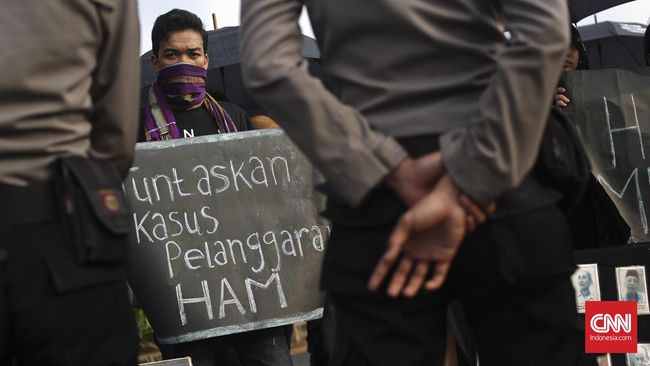 Tuntaskan
Kasus
Pelanggaran
HAM
H
M
N
CNN
Indonesia.com